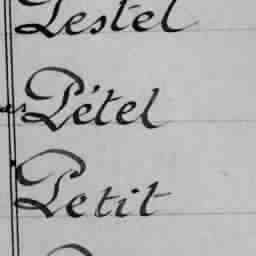 Pestel
Pétel
Petit